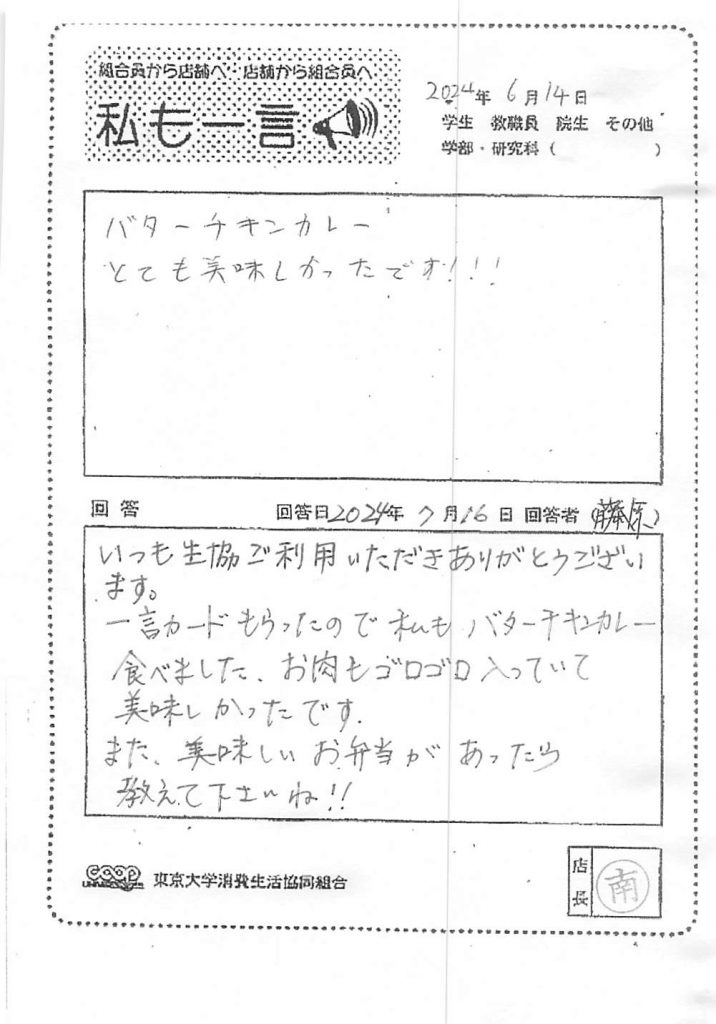 組合員から店舗へ・店舗から組合員へ
私も一言
2024年 6月14日
学生 教職員 院生 その他
学部・研究科 ( )
バターチキンカレー
とても美味しかったです!!!
回答 回答日2024年 7月16日 回答者 (藤原)
いつも生協ご利用いただきありがとうござい
ます。
一言カードもらったので私もバターチキンカレー
食べました、お肉もゴロゴロ入っていて
美味しかったです.
また、美味しいお弁当があったら
教えて下さいね!!
coop
UNIVERSITY
東京大学消費生活協同組合
店長
南